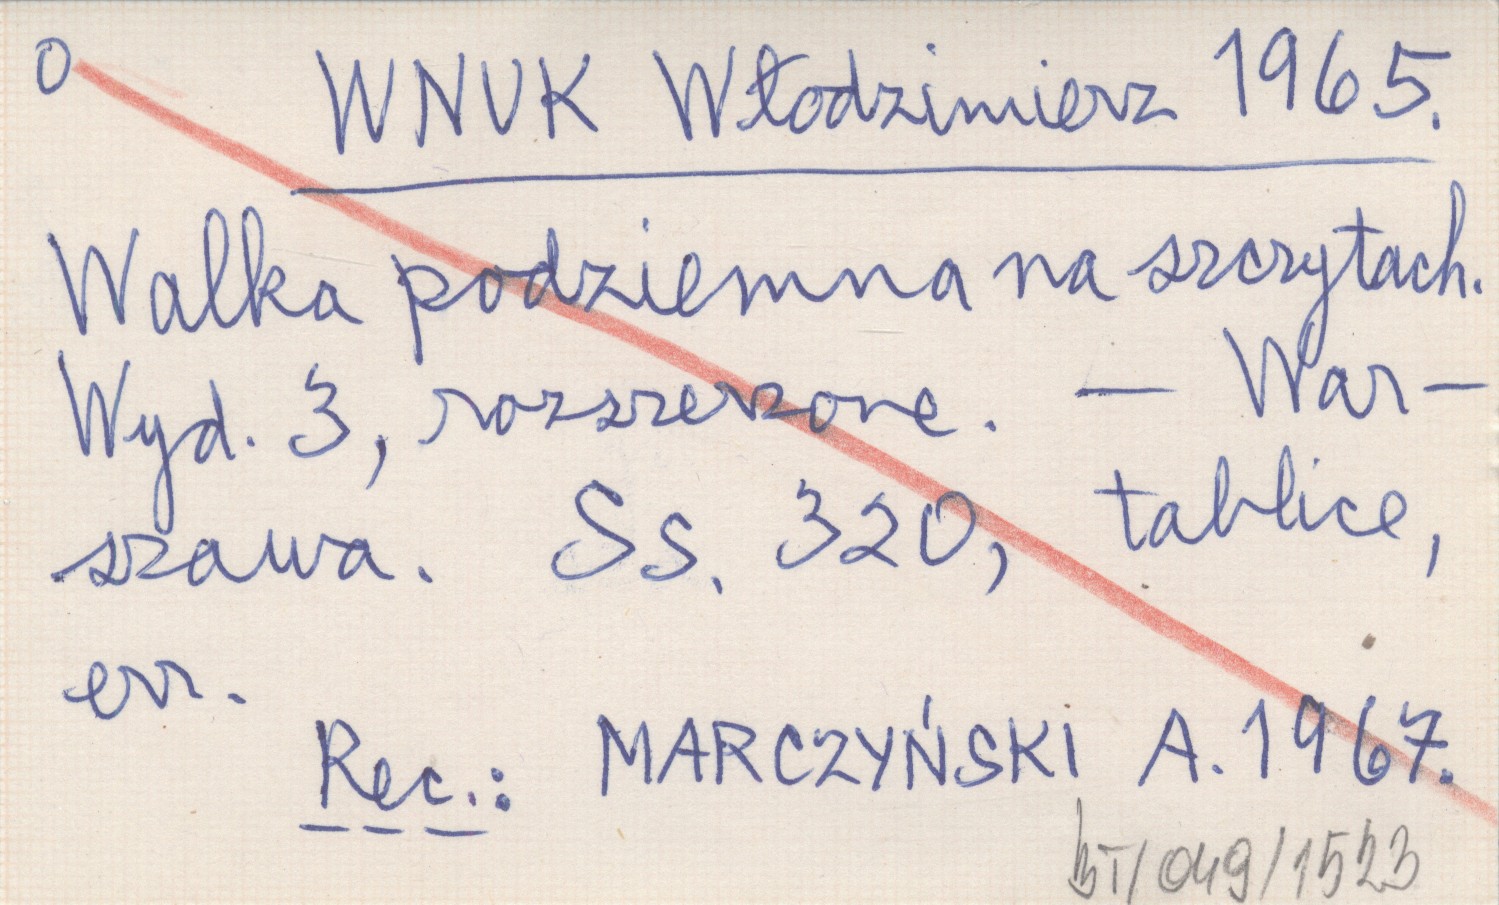 O WNUK Włodzimierz 1965.
Walka podziemna na szczytach.
Wyd. 3, rozszerzone. — War-
szawa. Ss. 320, tablice,
err.
Rec.: MARCZYŃSKI A. 1967.
BT/049/1523